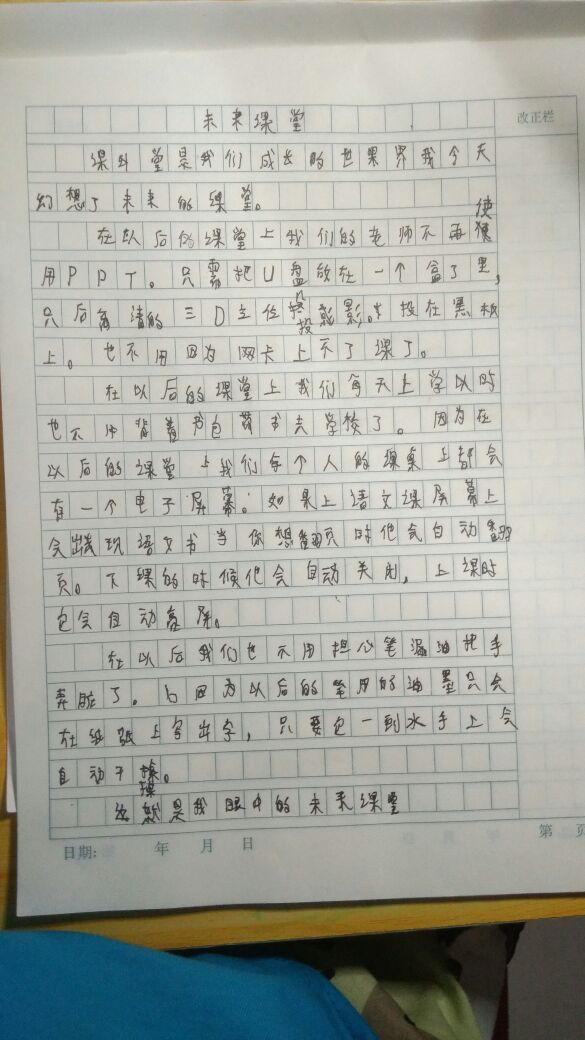 未来课堂
改正栏
课外堂是我们成长的世界界我今天
幻想了未来的课堂。
在以后的课堂上我们的老师不再使
用PPT。只需把U盘放在一个盒子里,
只后高清的三D立体投影。投在黑板
上。也不用因为网卡上不了课了。
在以后的课堂上我们每天上学以时
也不用背着书包背书去学校了。因为在
以后的课堂上我们每个人的课桌上都会
有一个电子屏幕。如果上语文课屏幕上
会出现语文书当你想翻页时他会自动翻
页。下课的时候他会自动关闭,上课时
它会自动亮屏。
在以后我们也不用担心笔漏油把手
弄脏了。因为以后的笔用的油墨只会
在纸张上写出字,只要它一到水手上会
自动干掉。
这就是我眼中的未来课堂
日期: 年 月 日
第 页